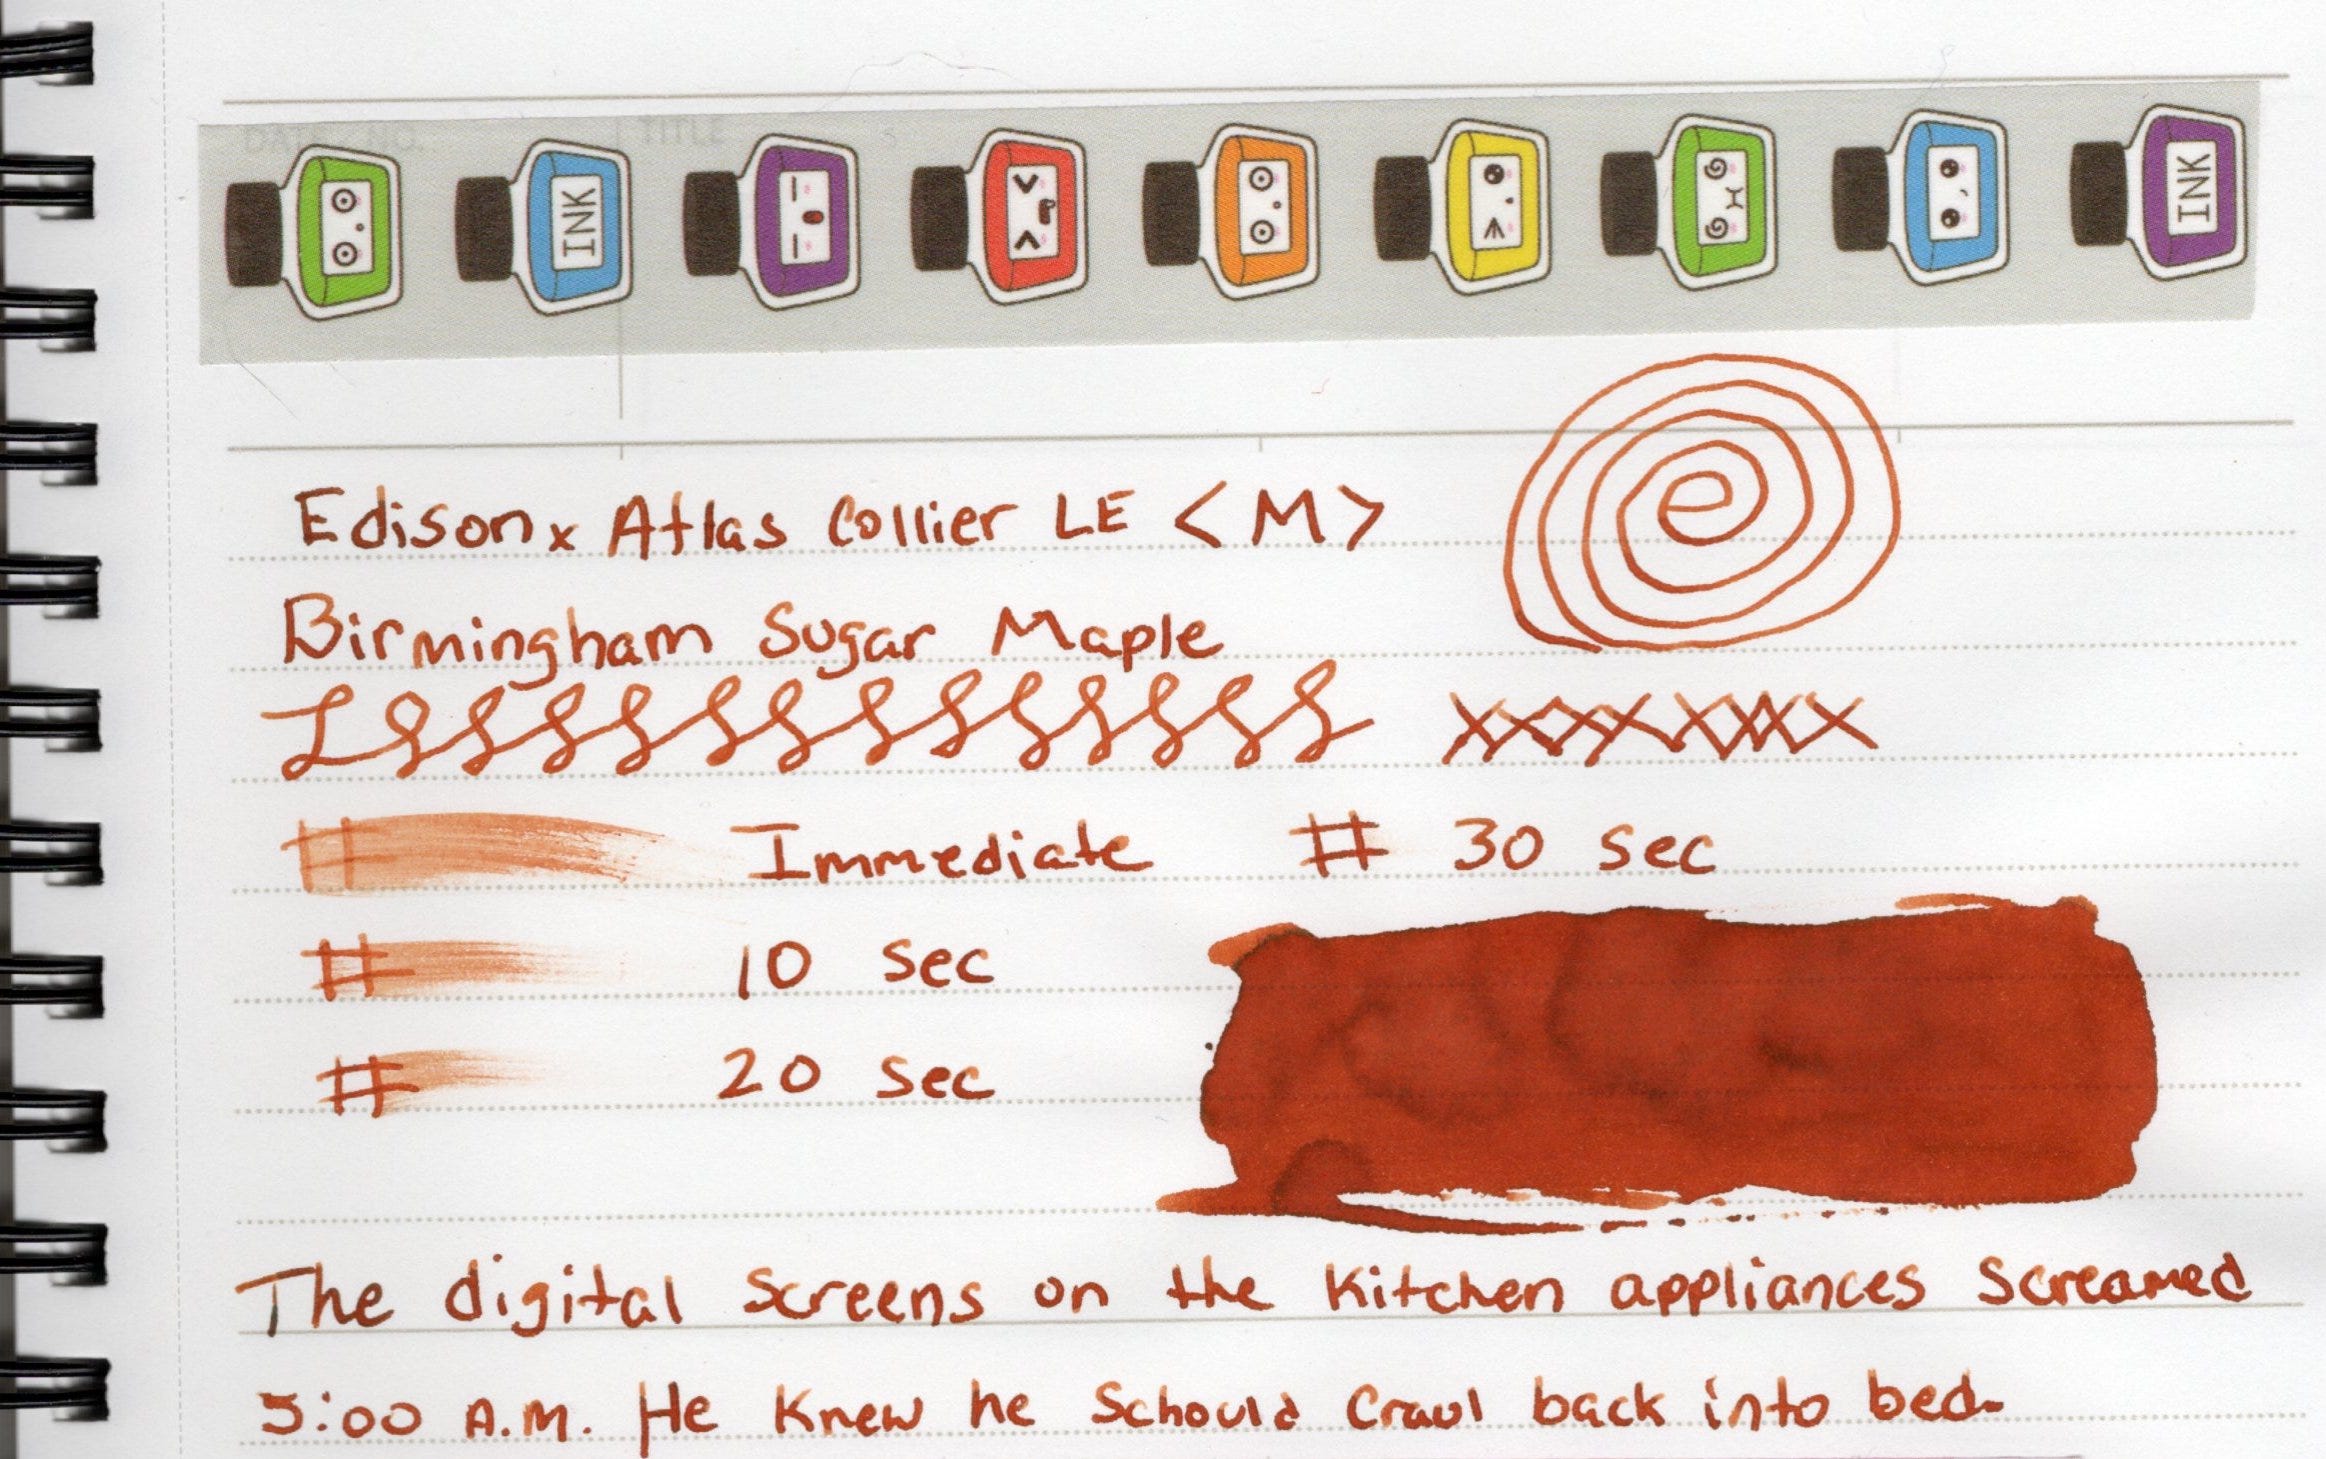 DATE / NO. TITLE
INK INK
Edison x Atlas Collier LE <M>
Birmingham Sugar Maple
xxxxxxx
# Immediate # 30 sec
# 10 sec
# 20 sec
The digital screens on the kitchen appliances screamed
5:00 A.M. He knew he schould craul back into bed.